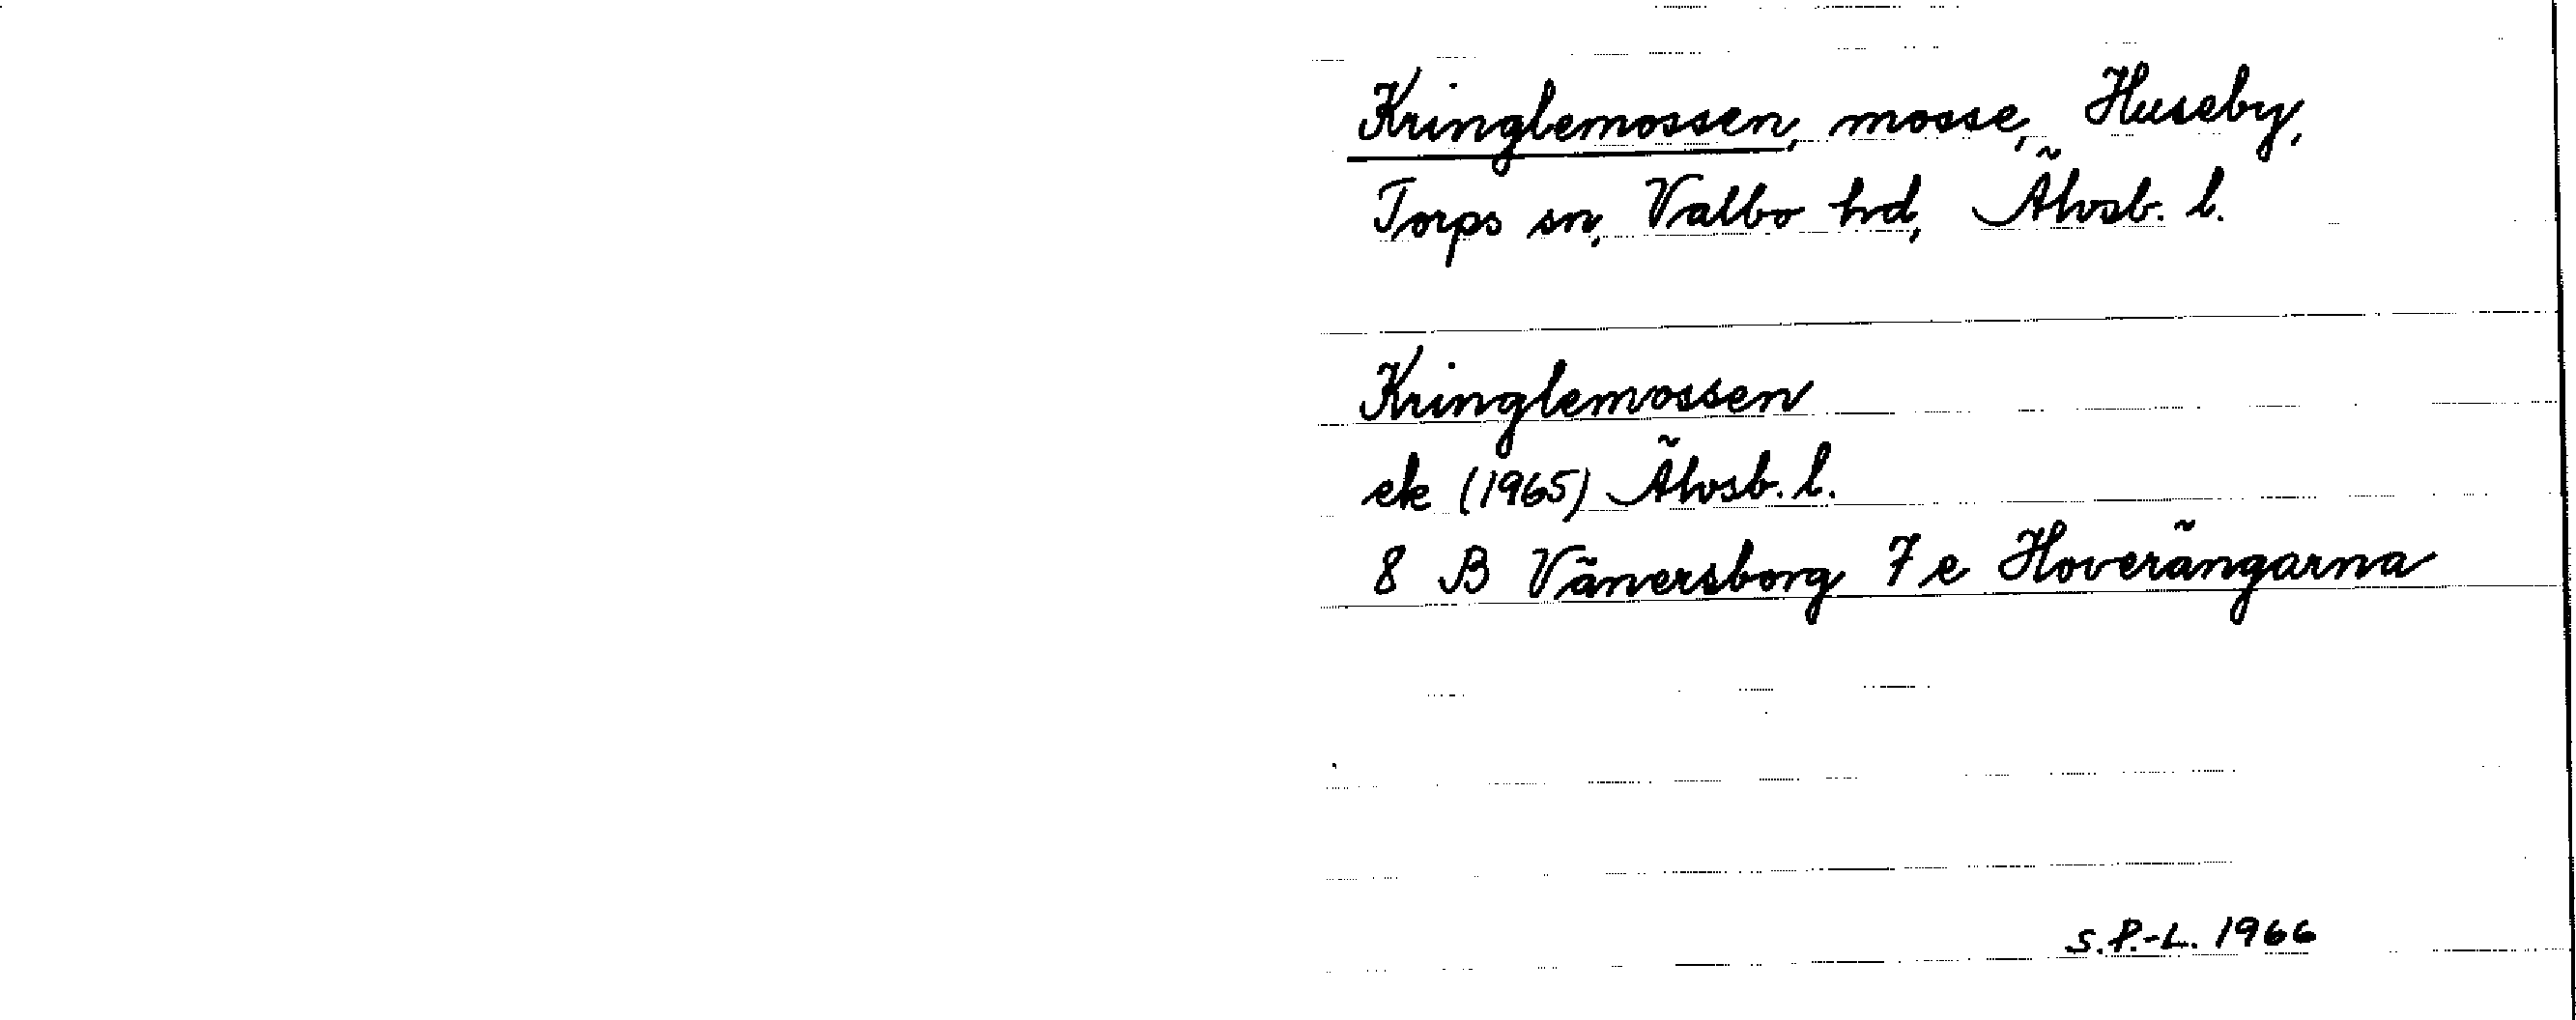 Kringlemossen, mosse, Huseby,
Torps sn, Valbo hd, Älvsb. l.
Kringlemossen
ek (1965) Älvsb. l.
8 B Vänersborg 7 e Hoverängarna
S.P.-L. 1966